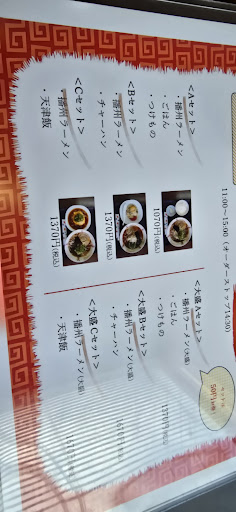 11:00〜15:00 (オーダーストップ14:30)
<Aセット>
・播州ラーメン
・ごはん
・つけもの
1070円(税込)
<Bセット>
・播州ラーメン
・チャーハン
1370円(税込)
<Cセット>
・播州ラーメン
・天津飯
1370円(税込)
<大盛Aセット>
・播州ラーメン(大盛)
・ごはん
・つけもの
1370円(税込)
<大盛Bセット>
・播州ラーメン(大盛)
・チャーハン
<大盛Cセット>
・播州ラーメン(大盛)
・天津飯